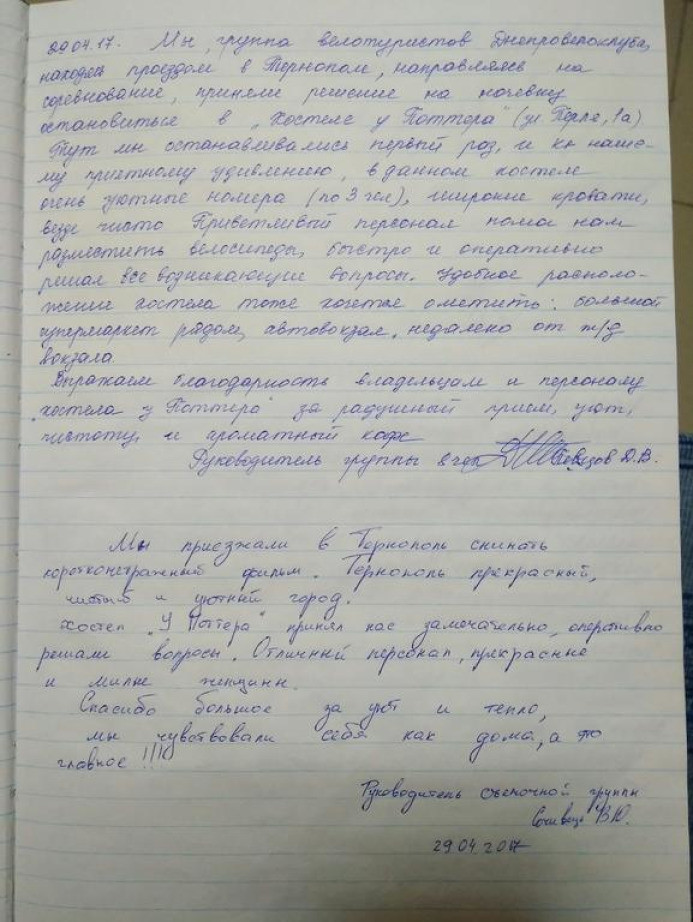 29.04.17. Мы, группа велотуристов Днепровелоклуба,
находясь проездом в Тернополе, направляясь на
соревнование, приняли решение на ночевку
остановиться в „Хостеле у Поттера" (ул Перля, 1а)
Тут мы останавливались первый раз, и к наше-
му приятному удивлению, в данном хостеле
очень уютные номера (по 3 чел), широкие кровати,
везде чисто Приветливый персонал помог нам
разместить велосипеды, быстро и оперативно
решал все возникающие вопросы. Удобное располо-
жение хостела тоже хочется отметить: большой
супермаркет рядом, автовокзал, недалеко от ж/д
вокзала.
Выражаем благодарность владельцам и персоналу
"хостела у Поттера" за радушный прием, уют,
чистоту и ароматный кофе
Руководитель группы Д.В.
Мы приезжали в Тернополь снимать
короткометражный фильм. Тернополь прекрасный,
чистый и уютный город.
Хостел „У Поттера" принял нас замечательно, оперативно
решали вопросы. Отличный персонал, прекрасные
и милые женщины.
Спасибо большое за уют и тепло,
мы чувствовали себя как дома, а это
главное !!!
Руководитель съемочной группы
В.Ю.
29.04.2017